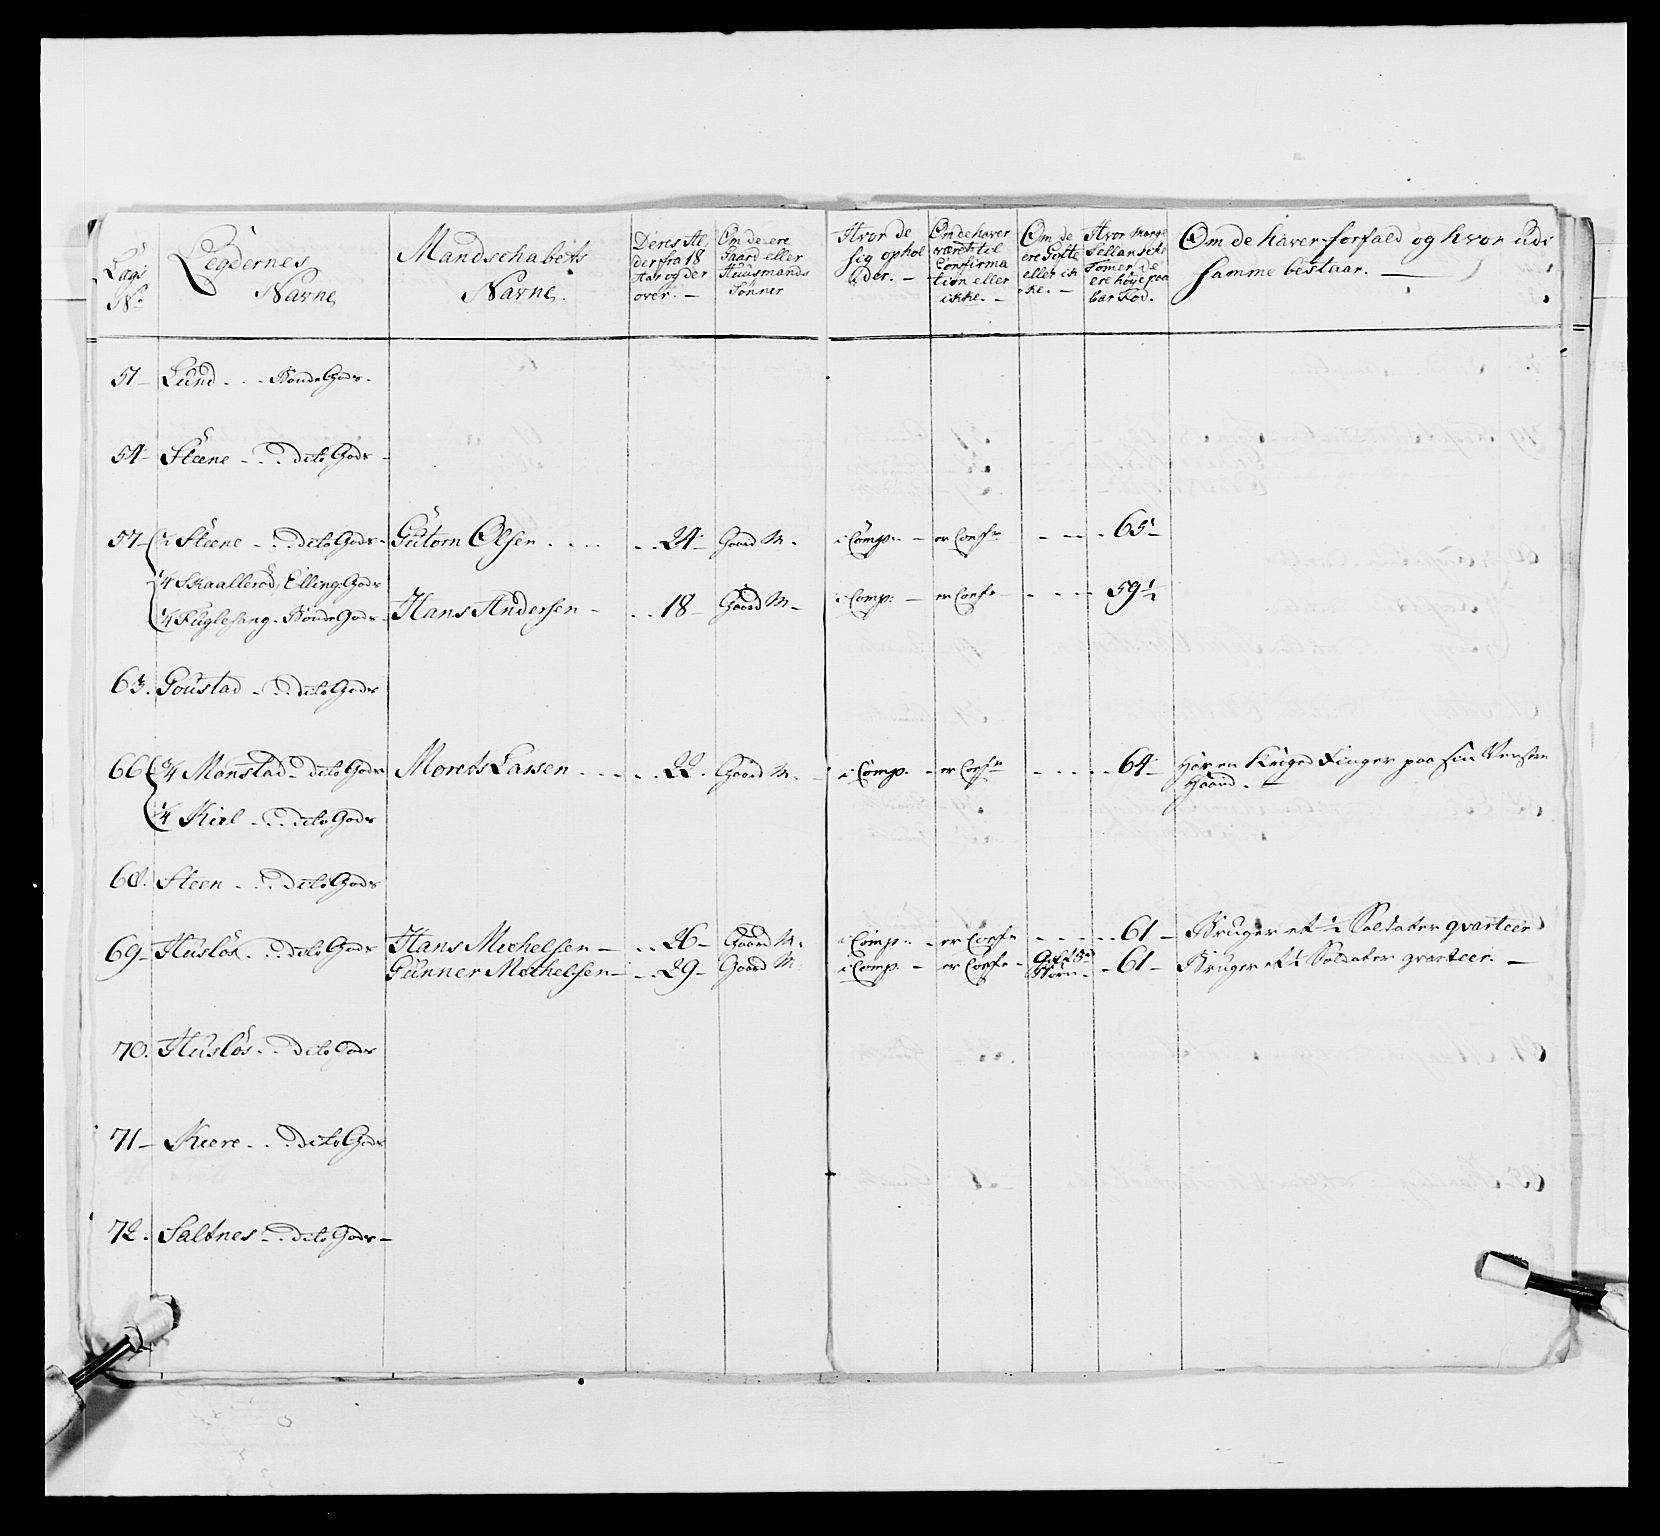 Lægs No
Legdernes Navne
Mandschabets Navne.
Deres Alder fra 18 Aar og derover. -
Om de ere Gaard eller Huusmands Sønner
Hvor de sig opholder. -
Om de haver været til Confirmation eller ikke. -
Om de ere Gifte eller ikke. -
Hvor mange Sellandske Tomer de ere høye paa bar Fod.
Om de haver forfald og hvor udi samme bestaar. -
51 - Lund . . . Bonde Gods -
54 - Steene - . . dito Gods -
57 - ½ Steene - . . dito Gods - Gutorn Olsen . . . . . . 24 - Gaard M. i Comp: - er Conf - - - - 65 -
¼ Skaallerød, Ellings Gods
¼ Fuglesang - Bonde Gods - Hans Andersen - . . 18 - Gaard M - i Comp: - er Conf - - - - 59½
63. Goustad - . . dito Gods
66 ¾ Manstad - dito Gods Morets Larsen . . . . . 22 . Gaard M. - i Comp. - er Conf - . . . . 64 - Har en Kruged Finger paa sin Venstre
Haand . -
¼ Kiel - . . dito Gods
68. Steen . . . dito Gods
69 - Husløs . . . dito Gods Hans Michelsen - . . 26 - Gaard M. i Comp: - er Conf . . . . . 61 - Bruger et ½ Soldater qvarteer
Gunner Michelsen - . . 29 - Gaard M. i Comp. - er Conf - Gift - 61 - Bruger et ½ Soldater qvarteer. -
70. Husløs - . . dito Gods
71 - Kiere - . . dito Gods
72. Saltnes - . . dito Gods -